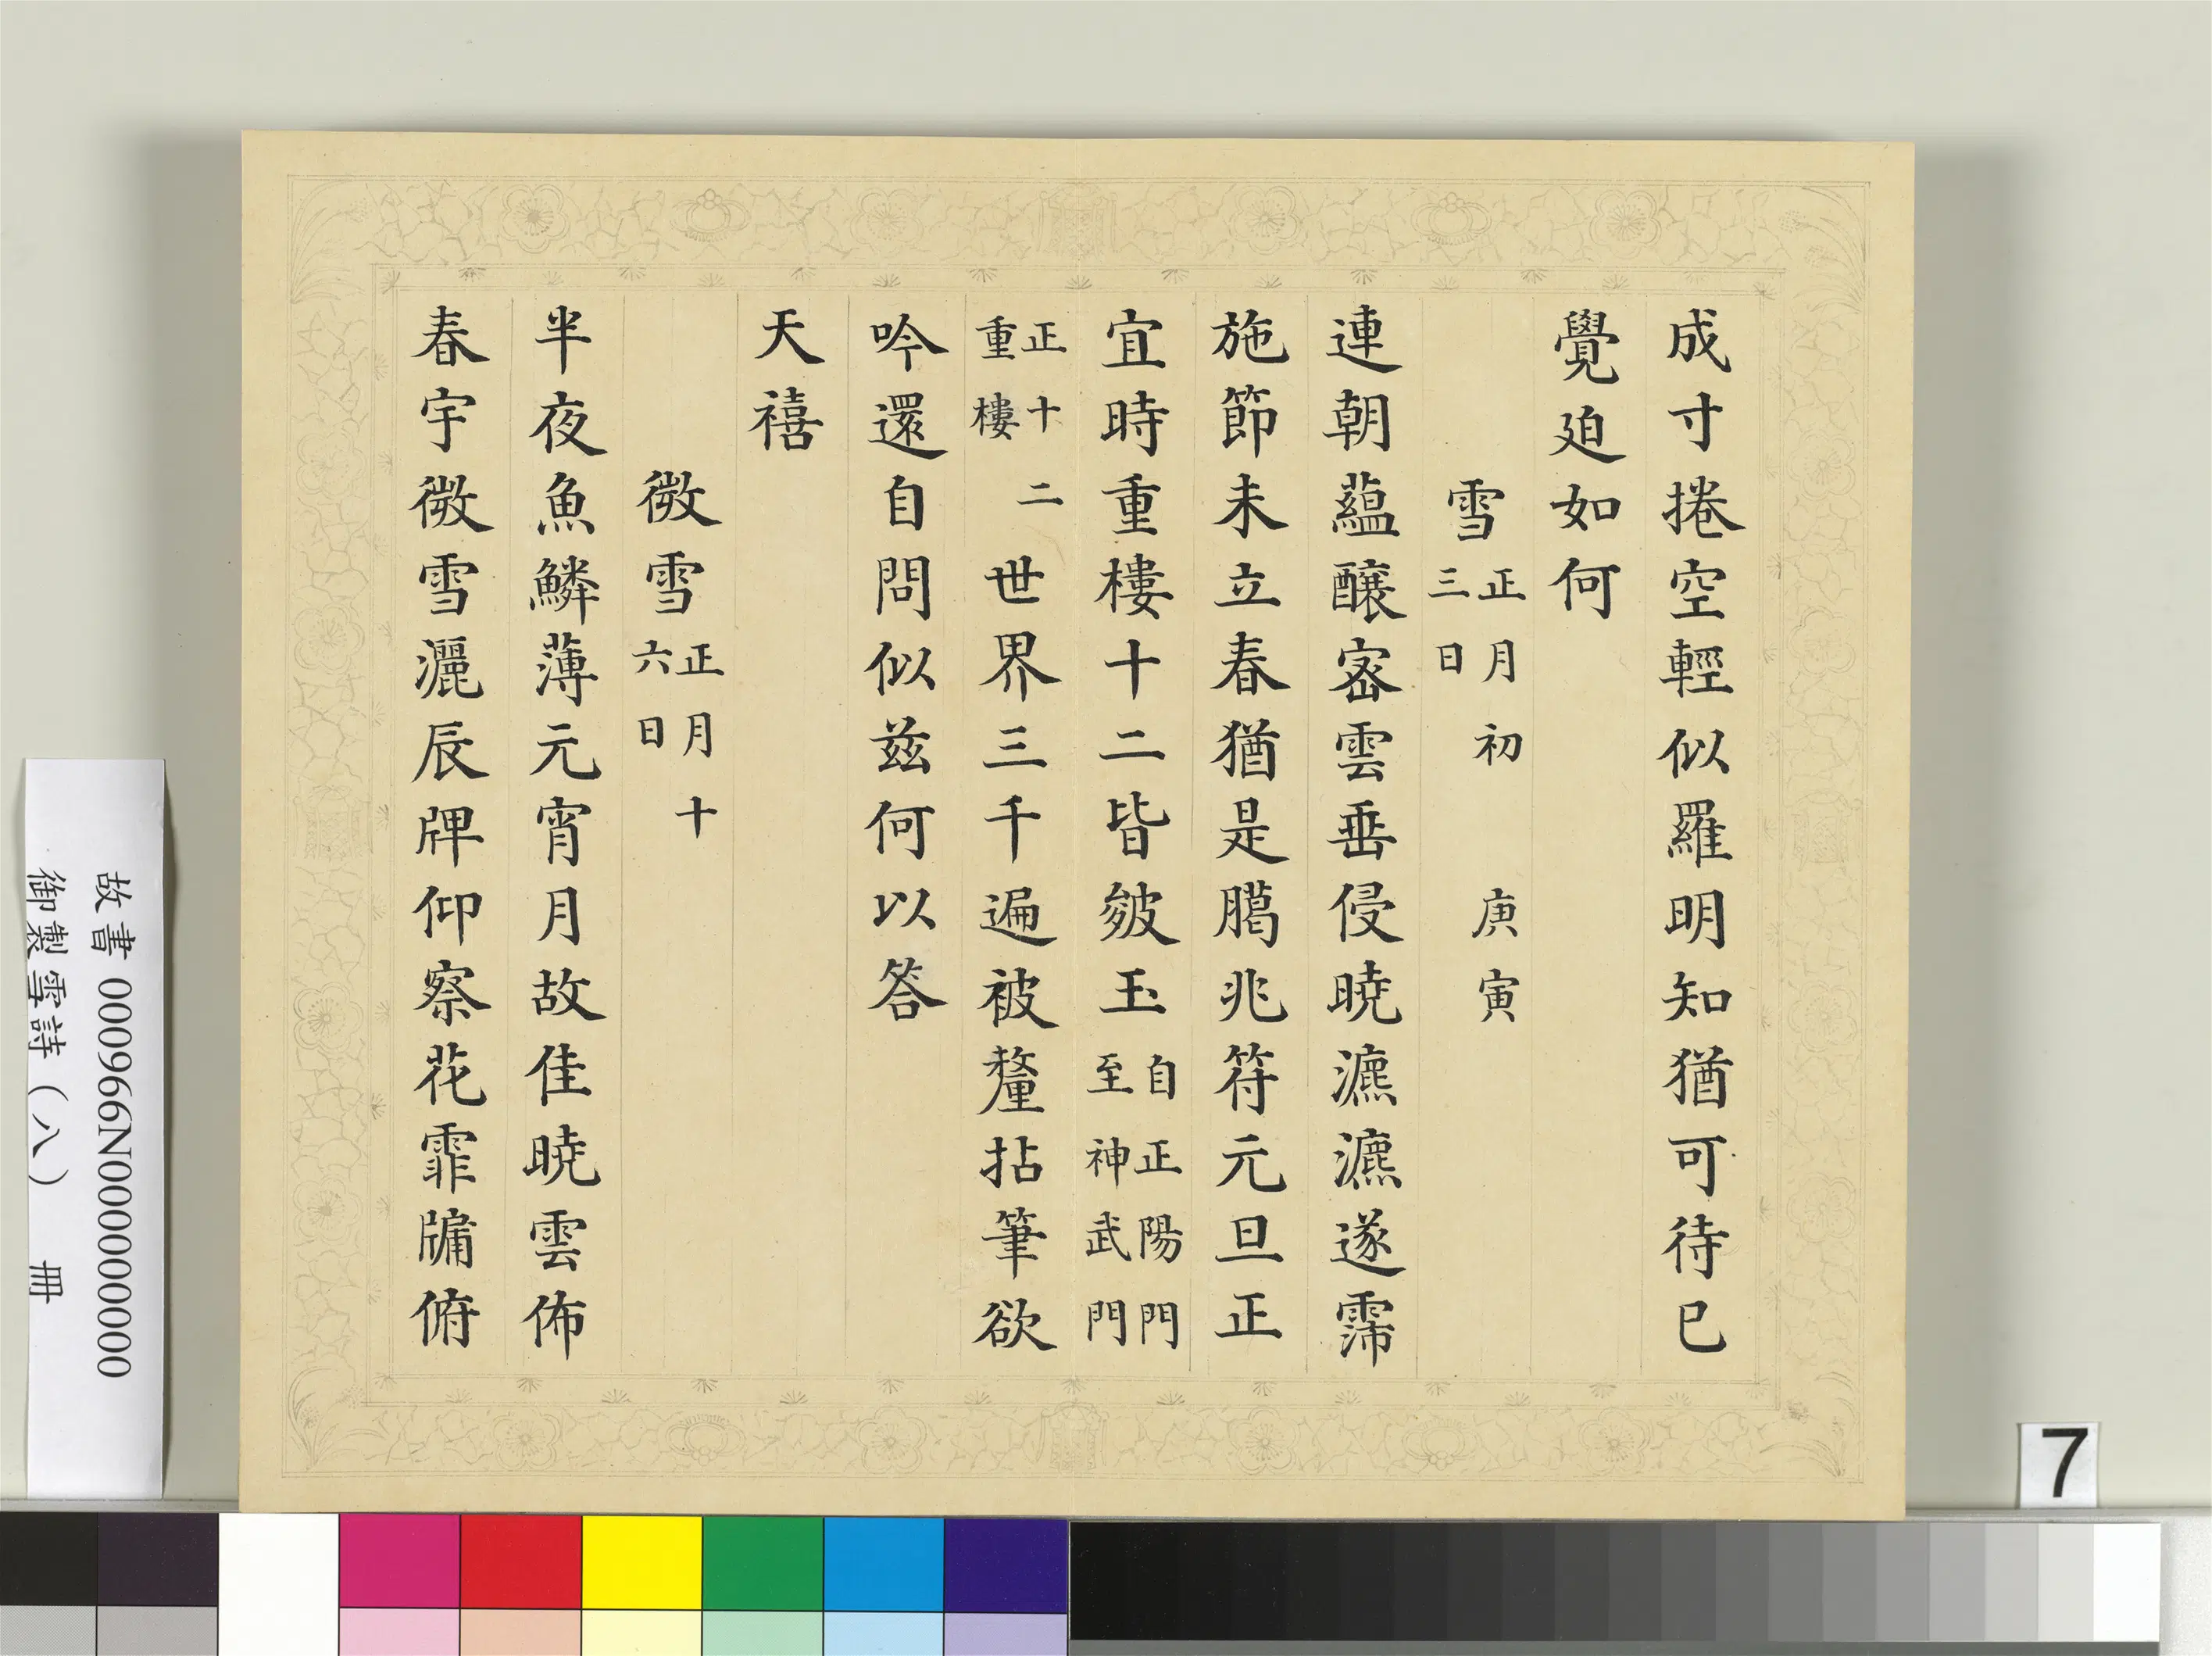 成寸捲空輕似羅明知猶可待已
覺廹如何
雪正月初三日 庚寅
連朝蘊釀密雲垂侵曉瀌瀌遂霈
施節未立春猶是臈兆符元旦正
宜時重樓十二皆皴玉自正陽門至神武門
正十二重樓世界三千遍被釐拈筆欲
吟還自問似兹何以答
天禧
微雪正月十六日
半夜魚鱗薄元宵月故佳曉雲佈
春宇微雪灑辰牌仰察花霏牖俯
故書 000966N000000000
御製雪詩(八) 冊
7